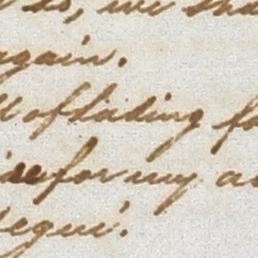 so, we sha
again.
of lading fo
for my a
egui.